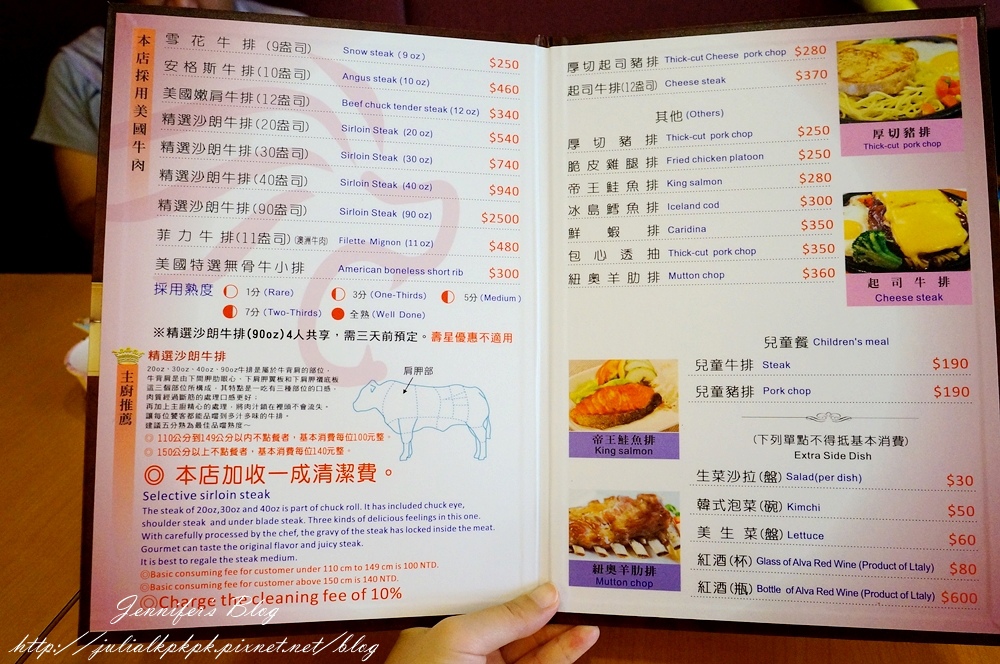 本店採用美國牛肉
雪花牛排(9盎司) Snow steak (9 oz) $250
安格斯牛排(10盎司) Angus steak (10 oz) $460
美國嫩肩牛排(12盎司) Beef chuck tender steak (12 oz) $340
精選沙朗牛排(20盎司) Sirloin Steak (20 oz) $540
精選沙朗牛排(30盎司) Sirloin Steak (30 oz) $740
精選沙朗牛排(40盎司) Sirloin Steak (40 oz) $940
精選沙朗牛排(90盎司) Sirloin Steak (90 oz) $2500
菲力牛排(11盎司)(澳洲牛肉) Filette Mignon (11 oz) $480
美國特選無骨牛小排 American boneless short rib $300
採用熟度 1分(Rare) 3分(One-Thirds) 5分(Medium)
7分(Two-Thirds) 全熟(Well Done)
※精選沙朗牛排(90oz)4人共享,需三天前預定。壽星優惠不適用
主廚推薦
精選沙朗牛排
20oz,30oz,40oz,90oz牛排是屬於牛背肩的部位,
牛背肩是由下開胛肋眼心、下肩胛翼板和下肩胛襠底板
這三個部位所構成,其特點是一吃有三種部位的口感,
肉質經過斷筋的處理口感更好;
再加上主廚精心的處理,將肉汁鎖在裡頭不會流失。
讓每位饕客都能品嚐到多汁多味的牛排。
建議五分熟為最佳品嚐熟度~
肩胛部
◎ 110公分到149公分以內不點餐者,基本消費每位100元整。
◎ 150公分以上不點餐者,基本消費每位140元。
◎ 本店加收一成清潔費。
Selective sirloin steak
The steak of 20oz,30oz and 40oz is part of chuck roll. It has included chuck eye,
shoulder steak and under blade steak. Three kinds of delicious feelings in this one.
With carefully processed by the chef, the gravy of the steak has locked inside the meat.
Gourmet can taste the original flavor and juicy steak.
It is best to regale the steak medium.
◎Basic consuming fee for customer under 110 cm to 149 cm is 100 NTD.
◎Basic consuming fee for customer above 150 cm is 140 NTD.
◎Charge the cleaning fee of 10%
厚切起司豬排 Thick-cut Cheese pork chop $280
起司牛排(12盎司) Cheese steak $370
其他(Others)
厚切豬排 Thick-cut pork chop $250
脆皮雞腿排 Fried chicken platoon $250
帝王鮭魚排 King salmon $280
冰島鱈魚排 Iceland cod $300
鮮蝦排 Caridina $350
包心透抽 Thick-cut pork chop $350
紐奧羊肋排 Mutton chop $360
厚切豬排
Thick-cut pork chop
起司牛排
Cheese steak
兒童餐 Children's meal
兒童牛排 Steak $190
兒童豬排 Pork chop $190
帝王鮭魚排
King salmon
(下列單點不得抵基本消費)
Extra Side Dish
生菜沙拉(盤) Salad(per dish) $30
韓式泡菜(碗) Kimchi $50
美生菜(盤) Lettuce $60
紅酒(杯) Glass of Alva Red Wine (Product of Ltaly) $80
紅酒(瓶) Bottle of Alva Red Wine (Product of Ltaly) $600
紐奧羊肋排
Mutton chop
Jennifer's Blog
http://julialkpkpk.pixnet.net/blog